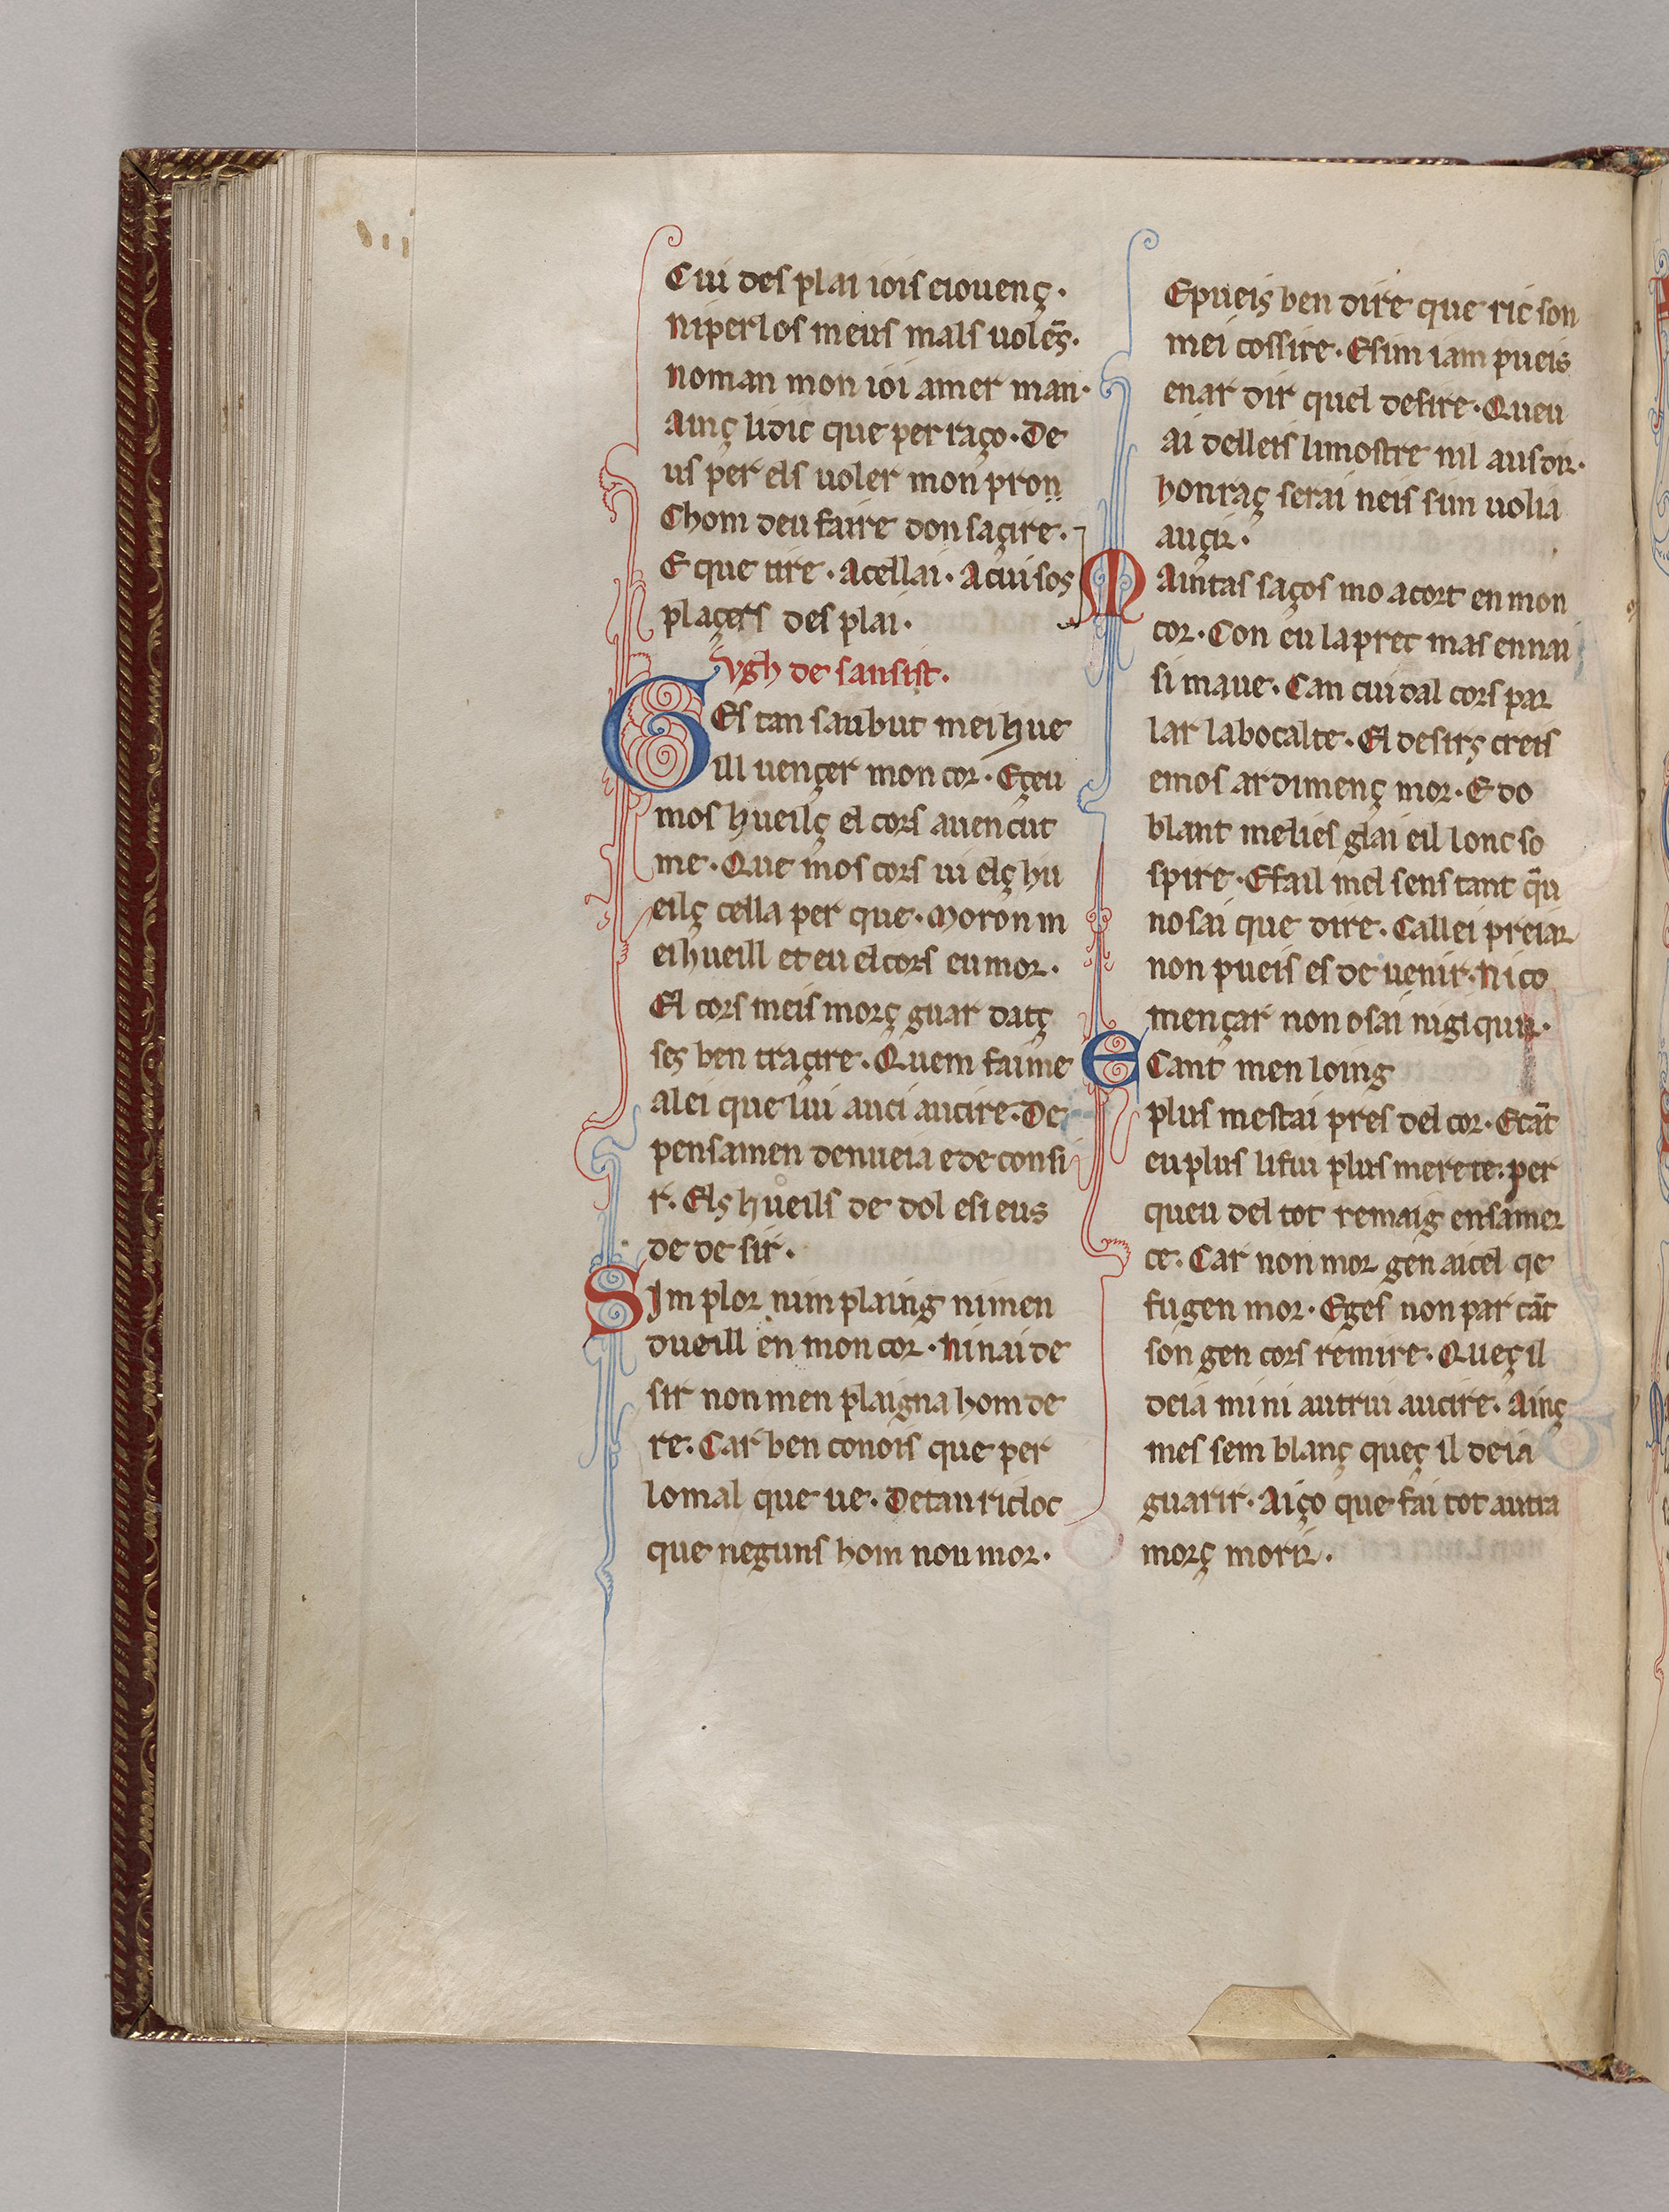 Cui des plai iois eiouenç·
niper los meus mals uolēs·
noman mon ioi amer man·
ainç lidic que per raço· De
us per els uoler mon pron
Chom deu faire don saçire·
E que tire· Acellai· Acui sos
plaçers des plai·
Vgh de sansist·
GEs tan saubut mei hue
ill uençer mon cor· Eçeu
mos hueilç el cors auencut
me· Que mos cors ui elç hu
eilç cella per que· Moron m
ei hueill et eu el cors eu mor·
El cors meis morç guar datç
ses ben traçire· Quem faime
alei que lui auci aucire· De
pensamen denueia e de consi
r· Els hueils de dol esieus
de de sir·
SIm plor nim plaing nimen
dueill en mon cor· Ninai de
sir non men plaigna hom de
re· Car ben conois que per
lo mal que ue· De tan ric loc
que neguns hom nou mor·
Epueis ben dire que ric son
mei cossire· Esim iam pueis
enar dir quel desire· Queu
ai delleis limostre nil aus dir·
honraç serai neis sim uolia
auçir·
Maintas saços mo acort en mon
cor· Con eu la prec mas ennai
si maue· Can cui dal cors par
lar la bocal te· El desirs creis
emos ar dimenç mor· E do
blant me lies glai eil lonc so
spire· E fail mel sens tant q̄u
no sai que dire· Callei preiar
non pueis es de uenir· Ni co
mençar non osai nigiquir·
E Cant men loing
plus mestai pres del cor· Ecāt
eu plus lifui plus merete· per
queu del tot remaig en samer
ce· Car non mor gen aicel qe
fugen mor· Eges non par cāt
son gen cors remire· Queç il
deia mi ni autrui aucire· Ainç
mes sem blanç queç il deia
guarir· Aiço que fai tot autra
morç morir·